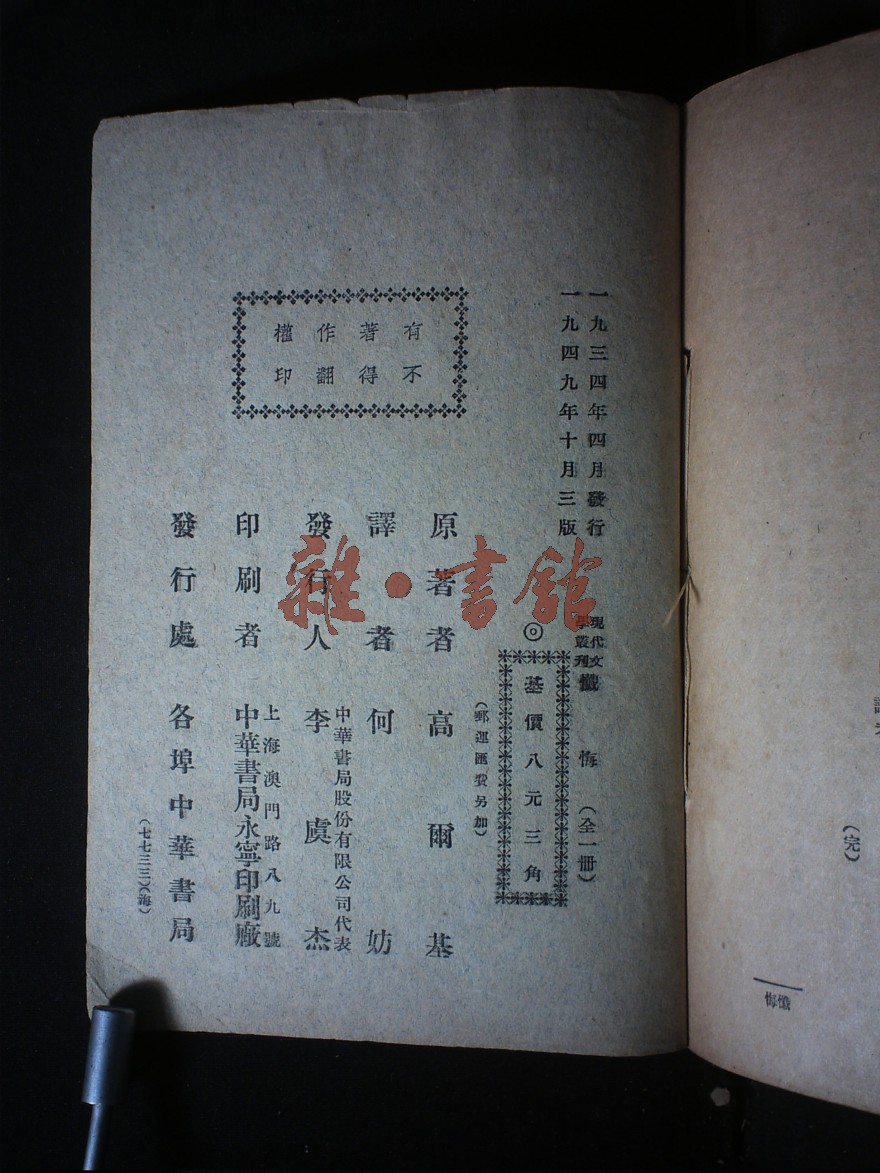 一九三四年四月發行
一九四九年十月三版
現代文
學叢刊
懺悔（全一冊）
◎
基價八元三角
（郵運匯費另加）
有著作權
不得翻印
原著者 高爾基
譯者 何妨
發行人 中華書局股份有限公司代表
李虞杰
印刷者 上海澳門路八九號
中華書局永寧印刷廠
發行處 各埠中華書局
（七七三三）（海）
（完）
懺悔
雜·書館